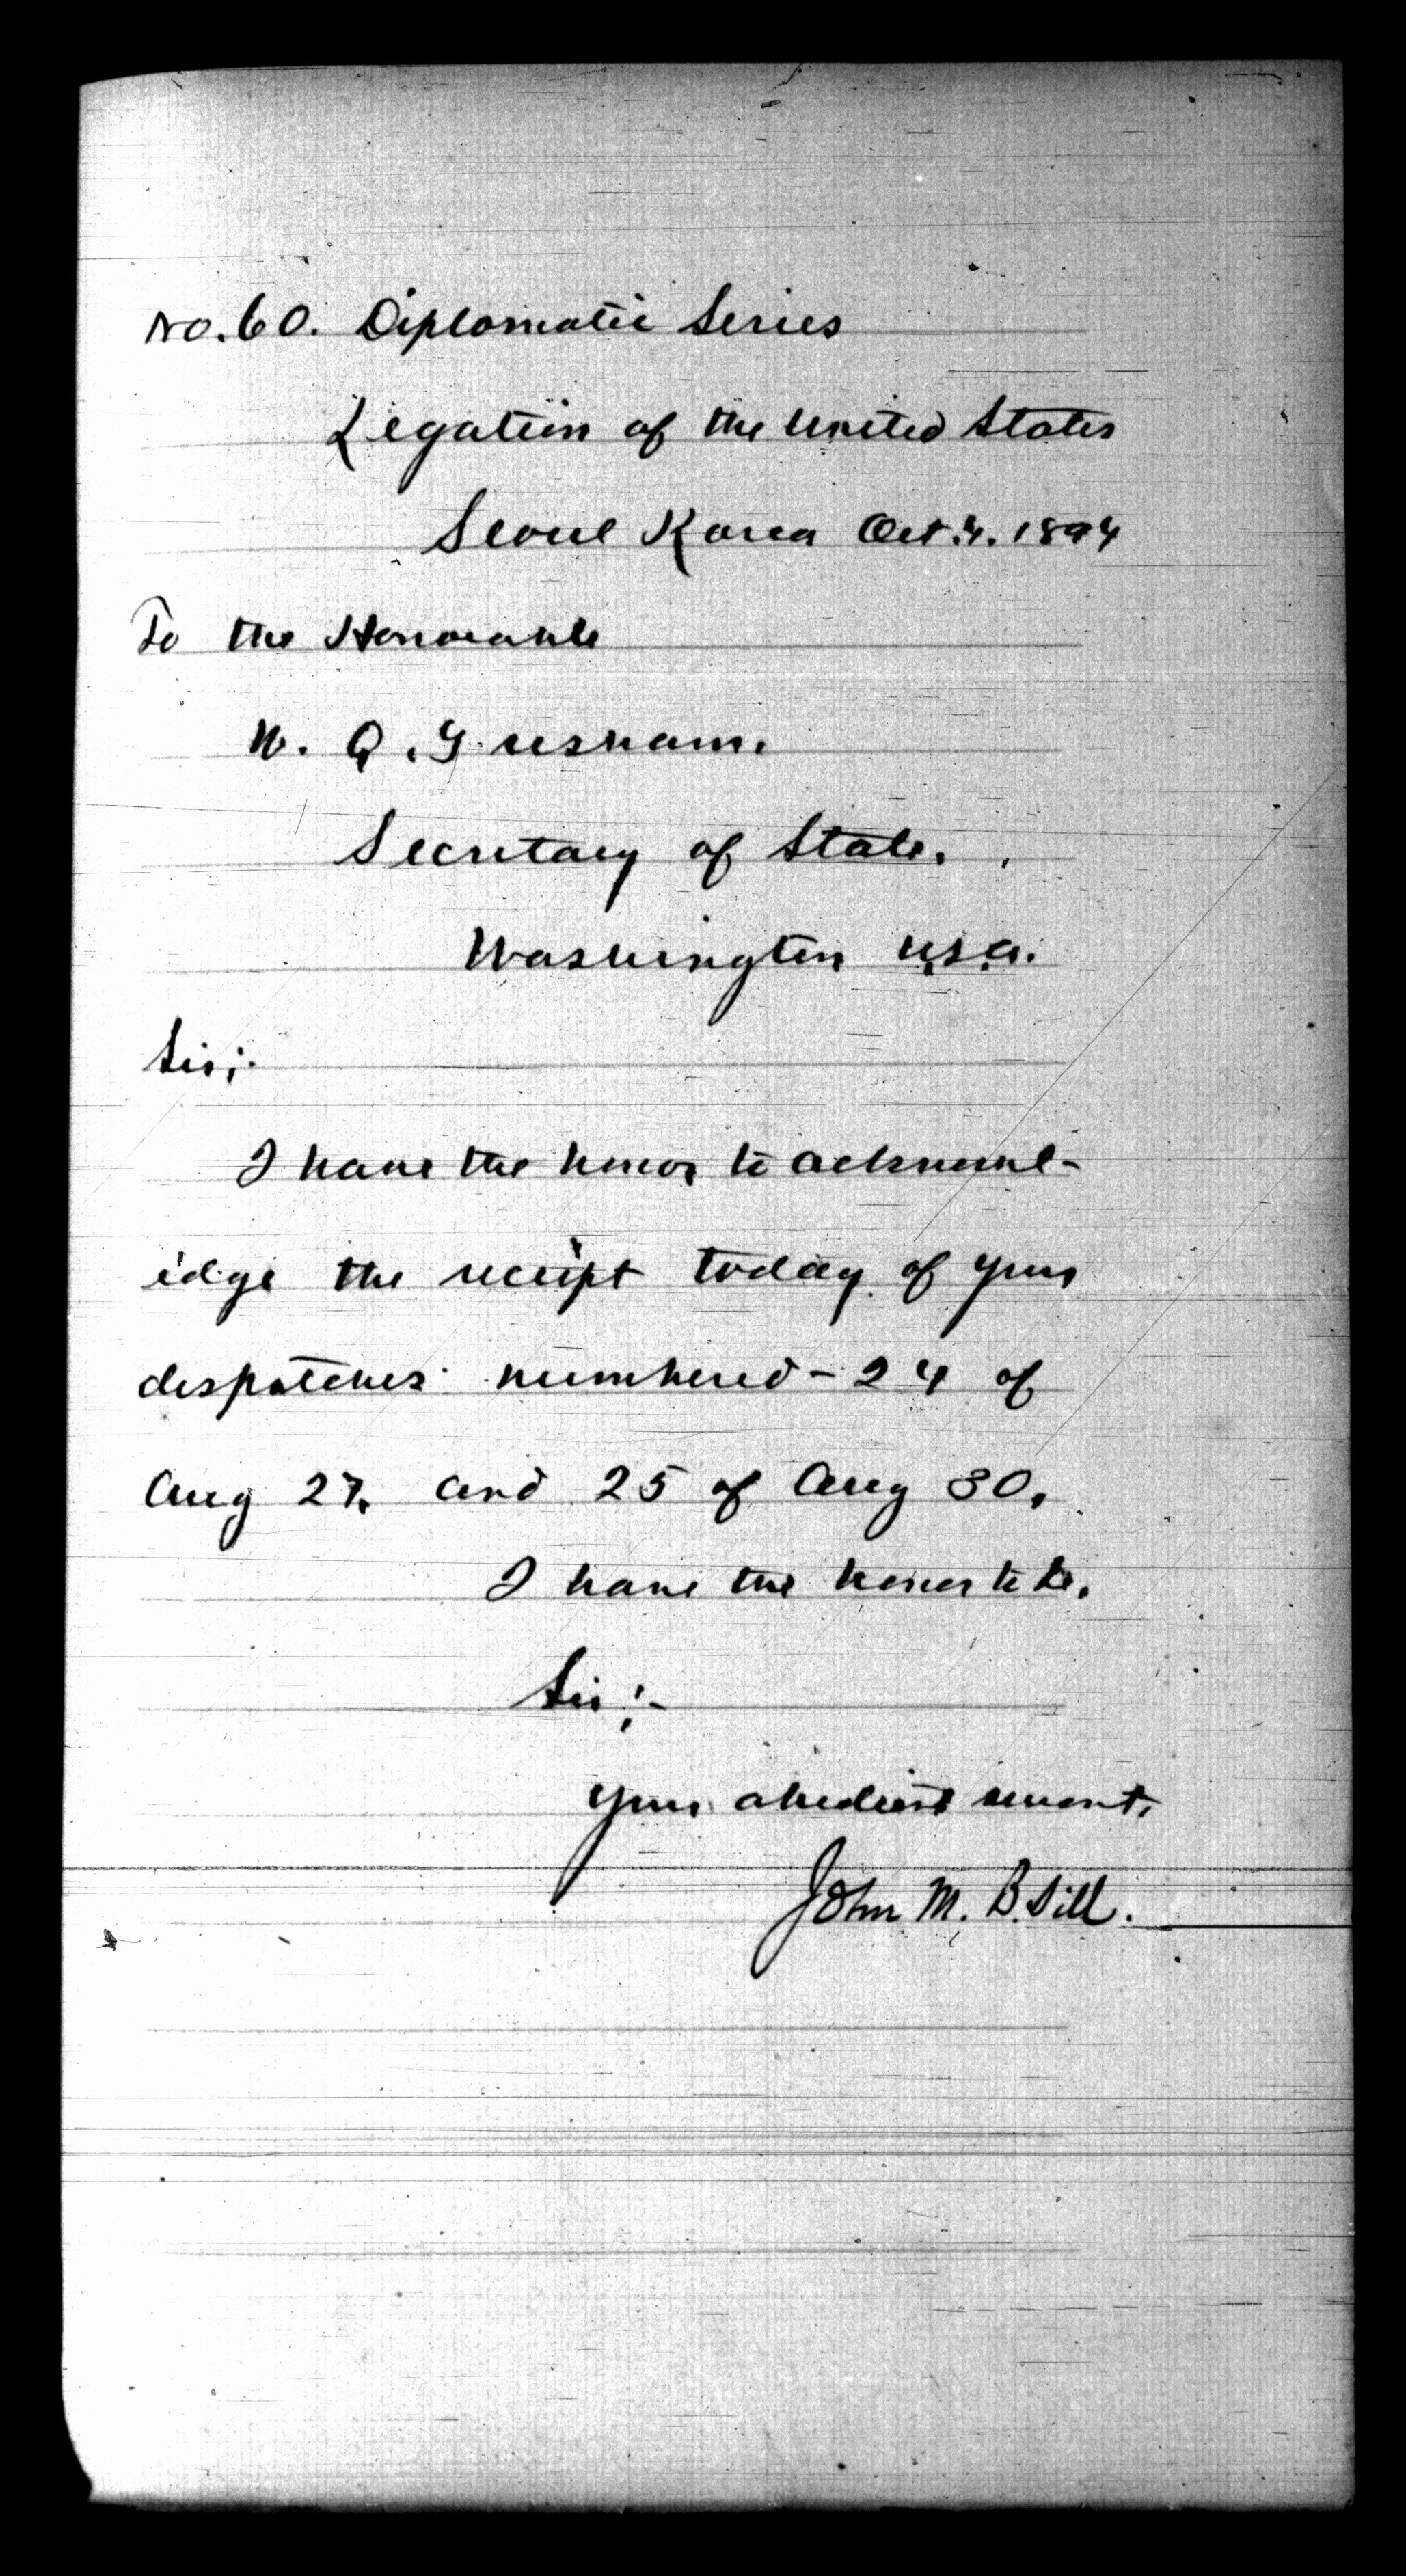 No. 60. Diplomatic Series
Legation of the United States
Seoul Korea Oct. 4. 1894
To the Honorable
W. Q. Gresham.
Secretary of State.
Washington U.S.A.
Sir;-
I have the honor to acknowl-
edge the receipt today of your
despatches numbered - 24 of
Aug 27. and 25 of Aug 30.
I have the honor to be,
Sir;-
Your obedient servant,
John M. B. Sill.